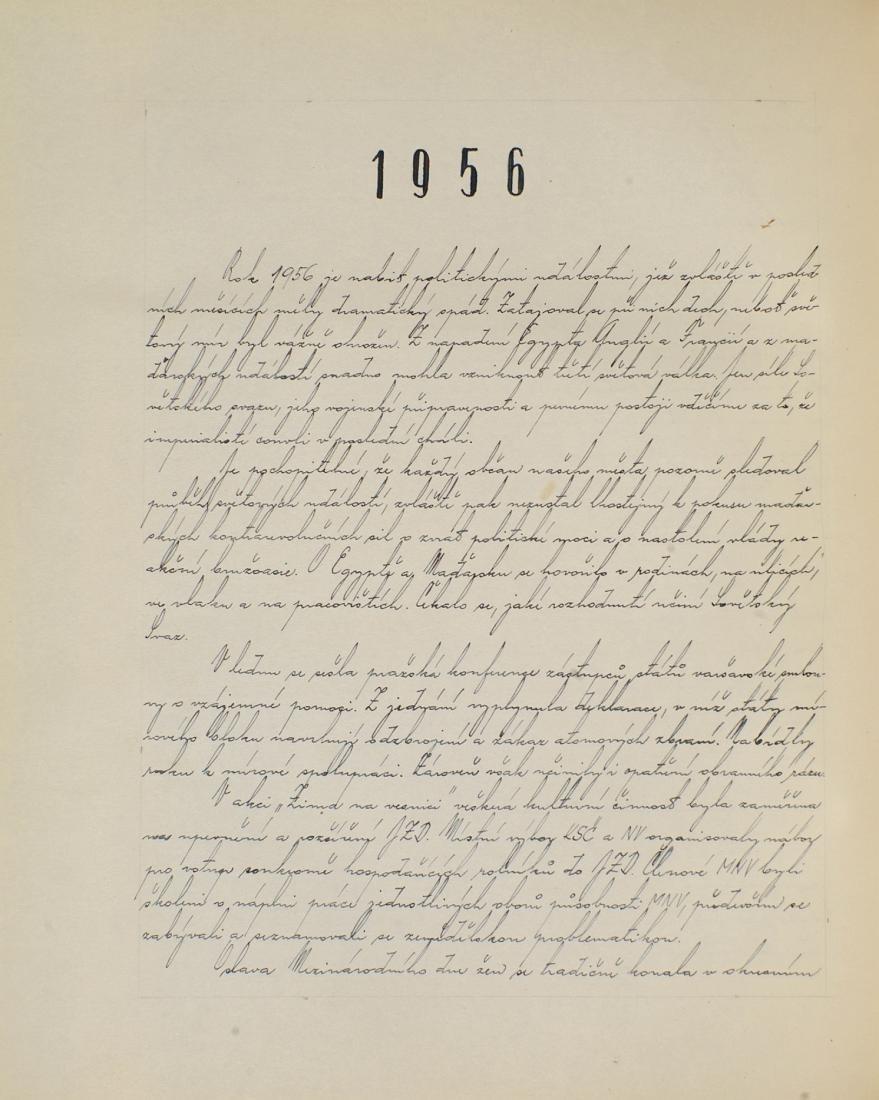 1956
Rok 1956 je nabit politickými událostmi, jež zvláště v posled-
ních měsících měly dramatický spád. Zatajoval se při nich dech, neboť svě-
tový mír byl vážně ohrožen. Z napadení Egypta Anglií a Francií a z ma-
ďarských událostí snadno mohla vzniknout třetí světová válka. Jen síle So-
větského svazu, jeho vojenské připravenosti a pevnému postoji vděčíme za to, že
imperialisté couvli v poslední chvíli.
Je pochopitelné, že každý občan našeho města pozorně sledoval
průběh světových událostí, zvláště pak nezůstal lhostejný k pokusu maďar-
ských kontrarevolučních sil o zvrat politické moci a o nastolení vlády re-
akční buržoasie. O Egyptě a Maďarsku se hovořilo v rodinách, na ulicích,
ve vlaku a na pracovištích. Čekalo se, jaké rozhodnutí učiní Sovětský
Svaz.
V lednu se sešla pražská konference zástupců států varšavské smlou-
vy o vzájemné pomoci. Z jednání vyplynula deklarace, v níž státy mí-
rového bloku navrhují odzbrojení a zákaz atomových zbraní. Nabídly
ruku k mírové spolupráci. Zároveň však učinily i opatření obranného rázu.
V akci „Zima na vesnici" veškerá kulturní činnost byla zaměřena
na upevnění a rozšíření JZD. Místní výbor KSČ a NV organisovaly nábor
pro vstup soukromě hospodařících rolníků do JZD. Členové MNV byli
školeni o náplni práce jednotlivých oborů působnosti MNV, především se
zabývali a seznamovali se zemědělskou problematikou.
Oslava Mezinárodního dne žen se tradičně konala v okresním